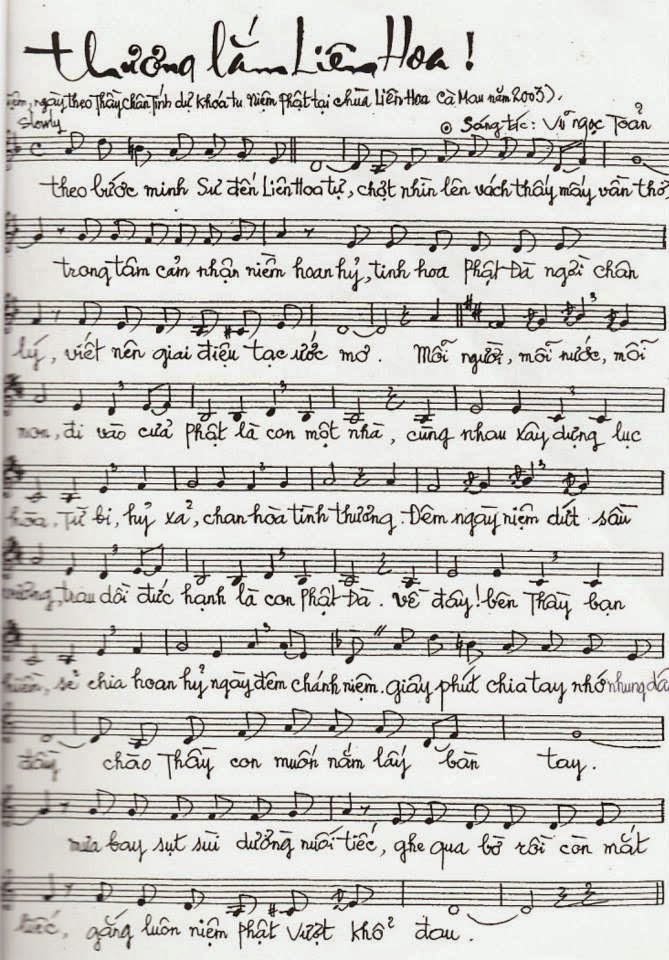 thương lắm Liên Hoa !
ngày theo Thầy chân Tính dự khóa tu Niệm Phật tại chùa Liên Hoa Cà Mau năm 2003).
Slowly
Sáng tác: Vũ Ngọc Toản
theo bước minh Sư đến Liên Hoa tự, chợt nhìn lên vách thấy mấy vần thơ,
trong tâm cảm nhận niềm hoan hỷ, tinh hoa Phật Đà ngời chân
lý, viết nên giai điệu tạc ước mơ. Mỗi người, mỗi nước, mỗi
non, đi vào cửa Phật là con một nhà, cùng nhau xây dựng lục
hòa, Từ bi, hỷ xả, chan hòa tình thương. Đêm ngày niệm dứt sầu
vương, trau dồi đức hạnh là con Phật Đà. về đây! bên Thầy bạn
hiền, sẻ chia hoan hỷ ngày đêm chánh niệm. giây phút chia tay nhớ nhung dâ
đầy chào Thầy con muốn nắm lấy bàn tay.
mưa bay sụt sùi dường nuối tiếc, ghe qua bờ rồi còn mắt
tiếc, gắng luôn niệm Phật vượt khổ đau.